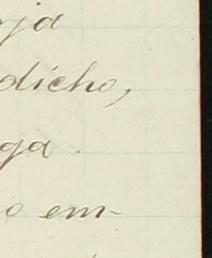 rja
dicho,
ga
o em-